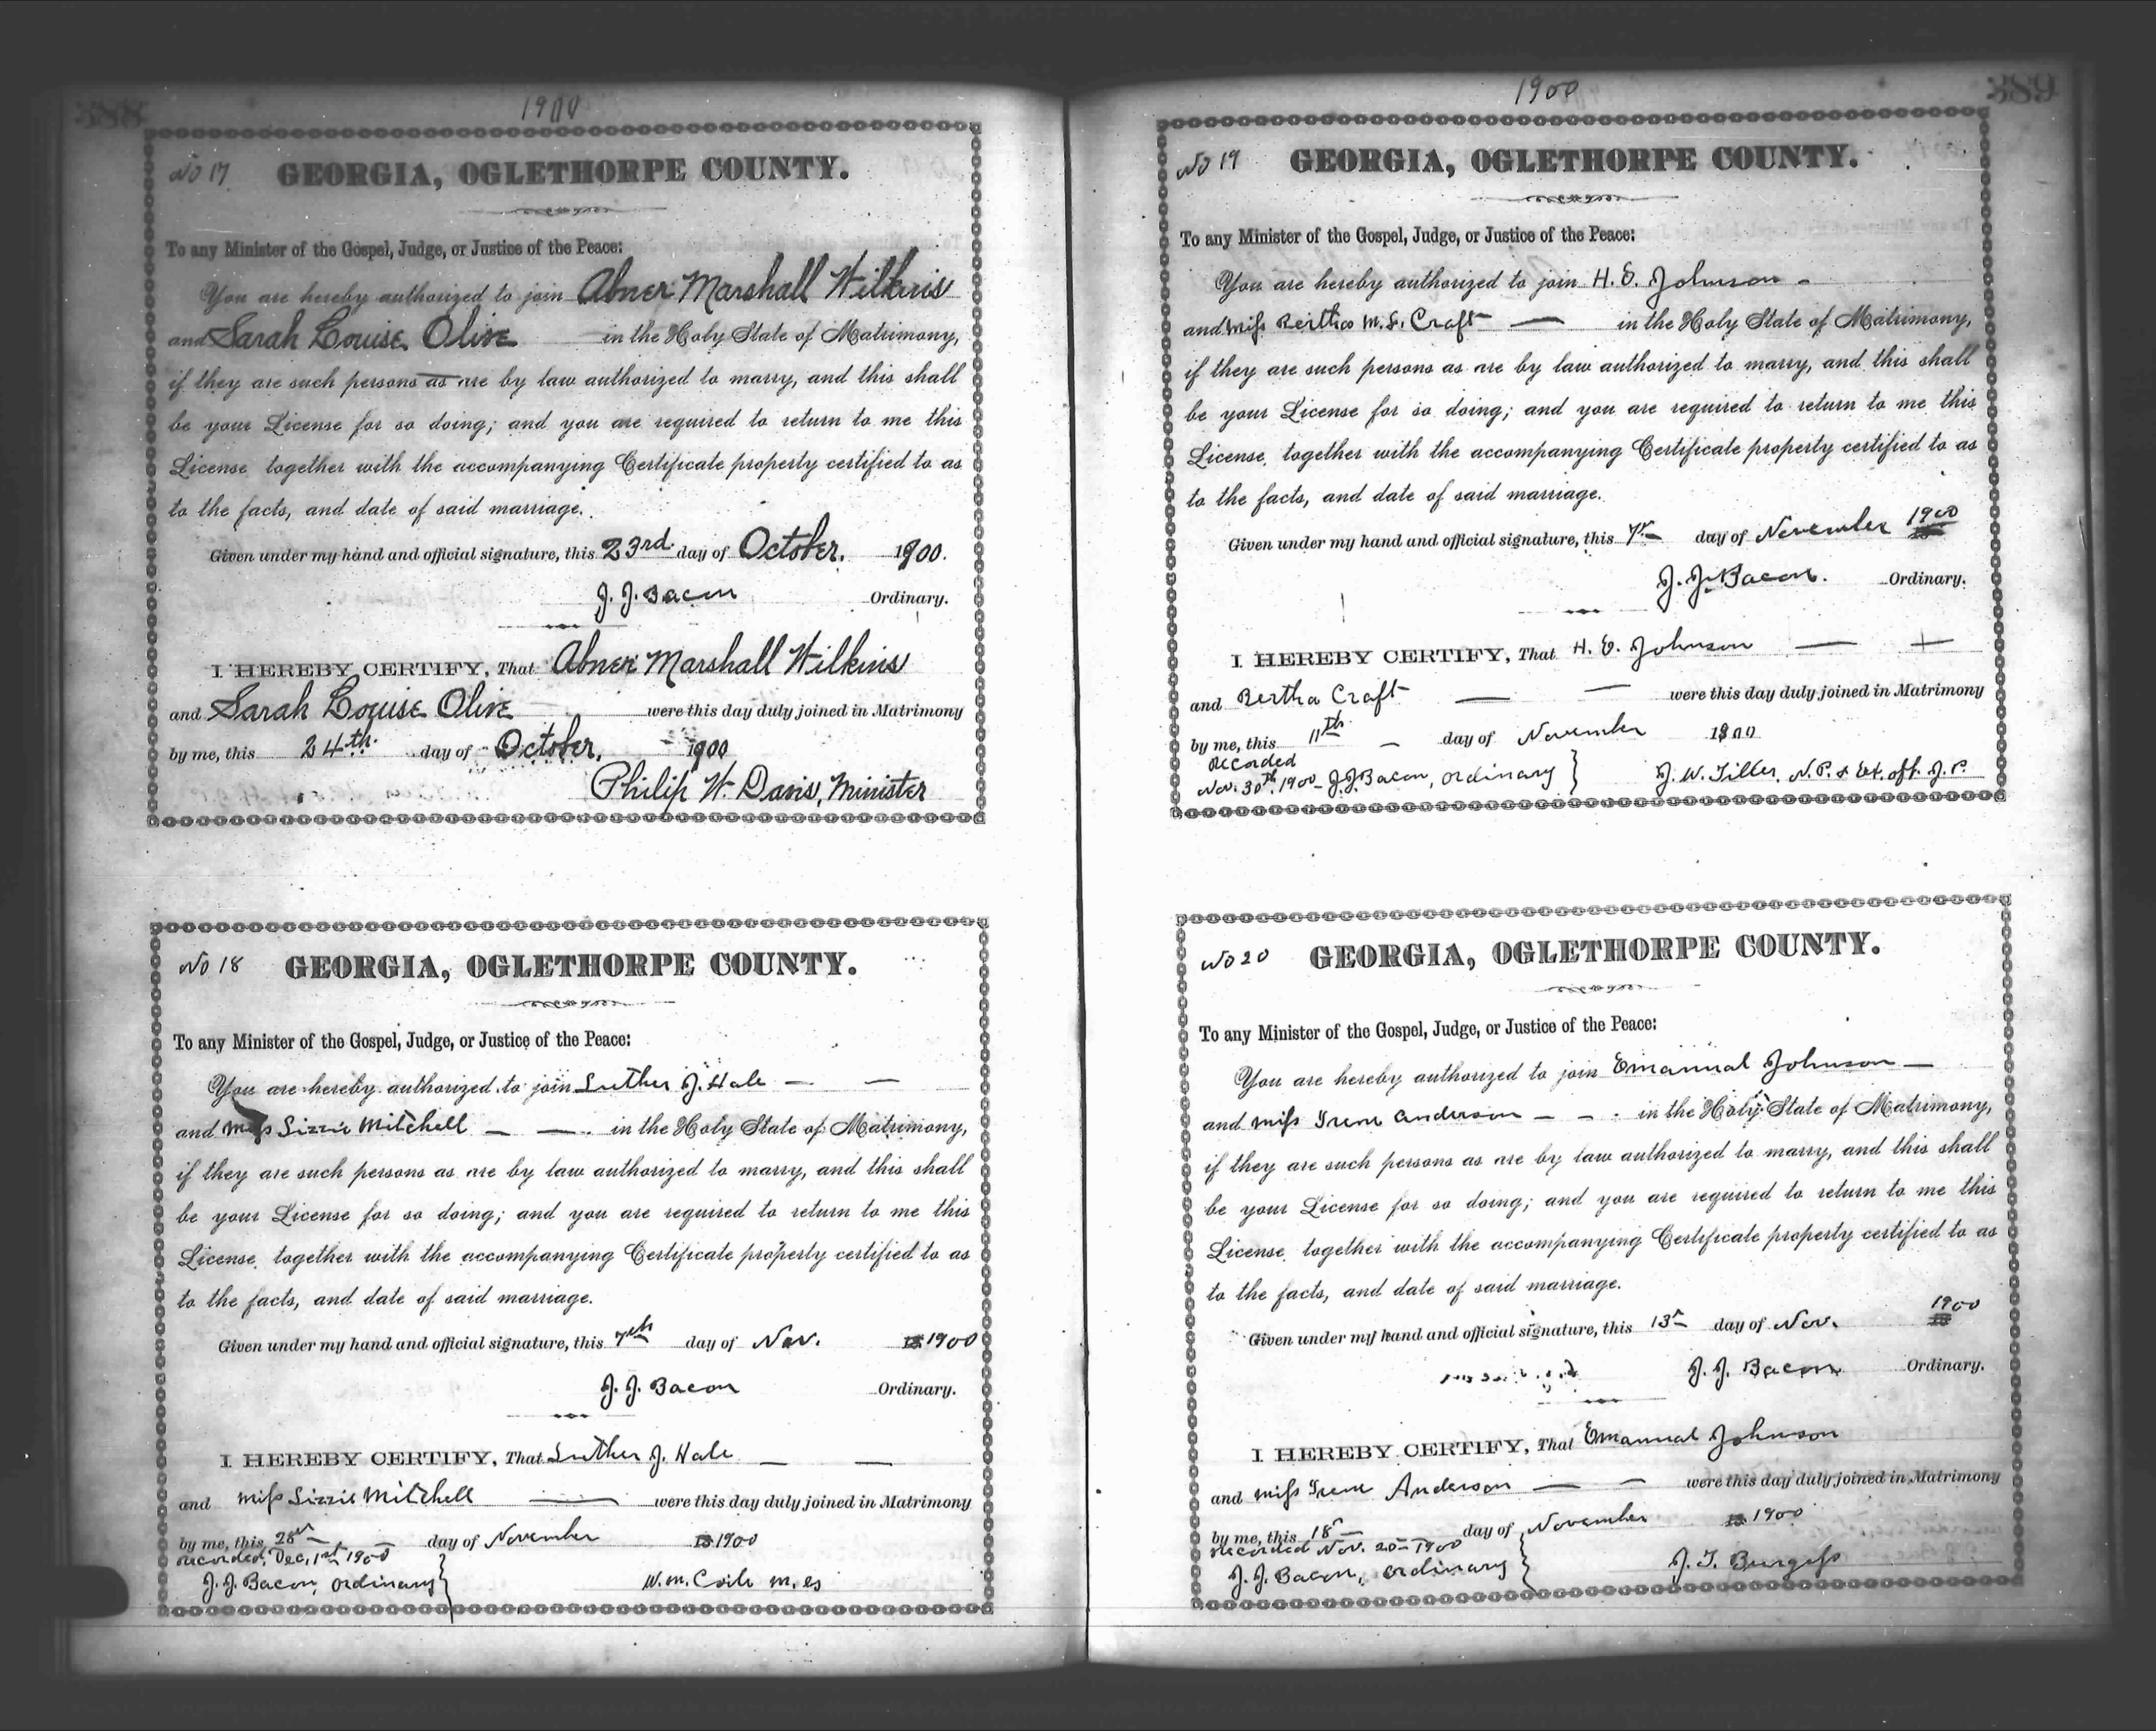 388
1900
No 17
GEORGIA, OGLETHORPE COUNTY.
To any Minister of the Gospel, Judge, or Justice of the Peace:
You are hereby authorized to join Abner Marshall Wilkins
and Sarah Louise Olive in the Holy State of Matrimony,
if they are such persons as are by law authorized to marry, and this shall
be your License for so doing; and you are required to return to me this
License, together with the accompanying Certificate property certified to as
to the facts, and date of said marriage.
Given under my hand and official signature, this 23rd day of October. 1900.
J. J. Bacon Ordinary.
I HEREBY CERTIFY, That Abner Marshall Wilkins
and Sarah Louise Olive were this day duly joined in Matrimony
by me, this 24th day of October, 1900
Philip W. Davis, Minister
No 18
GEORGIA, OGLETHORPE COUNTY.
To any Minister of the Gospel, Judge, or Justice of the Peace:
You are hereby authorized to join Luther J. Hale
and Miss Lizzie Mitchell in the Holy State of Matrimony,
if they are such persons as are by law authorized to marry, and this shall
be your License for so doing; and you are required to return to me this
License, together with the accompanying Certificate property certified to as
to the facts, and date of said marriage.
Given under my hand and official signature, this 7th day of Nov. 1900
J. J. Bacon Ordinary.
I HEREBY CERTIFY, That Luther J. Hale
and Miss Lizzie Mitchell were this day duly joined in Matrimony
by me, this 28th day of November 1900
Recorded, Dec, 1st 1900
J. J. Bacon, Ordinary W. M. Coile
389
1900
No 19
GEORGIA, OGLETHORPE COUNTY.
To any Minister of the Gospel, Judge, or Justice of the Peace:
You are hereby authorized to join H. E. Johnson
and Miss Bertha M. L. Craft in the Holy State of Matrimony,
if they are such persons as are by law authorized to marry, and this shall
be your License for so doing; and you are required to return to me this
License, together with the accompanying Certificate property certified to as
to the facts, and date of said marriage.
Given under my hand and official signature, this 7th day of November 1900
J. J. Bacon. Ordinary.
I HEREBY CERTIFY, That H. E. Johnson
and Bertha Craft were this day duly joined in Matrimony
by me, this 11th day of November 1900
Recorded
Nov. 30th 1900 J. J. Bacon, Ordinary J. W. Tiller, N. P. & Ex. off. J. P.
No 20
GEORGIA, OGLETHORPE COUNTY.
To any Minister of the Gospel, Judge, or Justice of the Peace:
You are hereby authorized to join Emanual Johnson
and Miss Irene Anderson in the Holy State of Matrimony,
if they are such persons as are by law authorized to marry, and this shall
be your License for so doing; and you are required to return to me this
License, together with the accompanying Certificate property certified to as
to the facts, and date of said marriage.
Given under my hand and official signature, this 13th day of Nov. 1900
J. J. Bacon Ordinary.
I HEREBY CERTIFY, That Emanual Johnson
and Miss Irene Anderson were this day duly joined in Matrimony
by me, this 18th day of November 1900
Recorded Nov. 20th 1900
J. J. Bacon, Ordinary J. T. Burgess